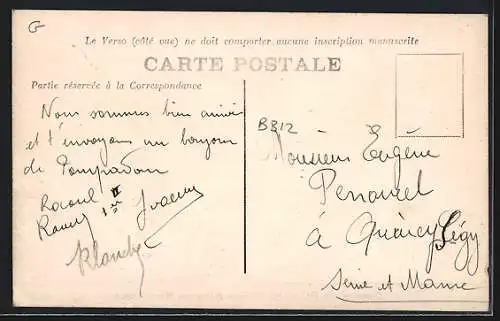 G
Le Verso (côté vue) ne doit comporter aucune inscription manuscrite
CARTE POSTALE
Partie réservée à la Correspondance
Nous sommes bien arrivé
et t'envoyons un bonjour
de Pompadour
Raoul
Blanche
B312
Monsieur Eugène
à Quincy Ségy
Seine et Marne